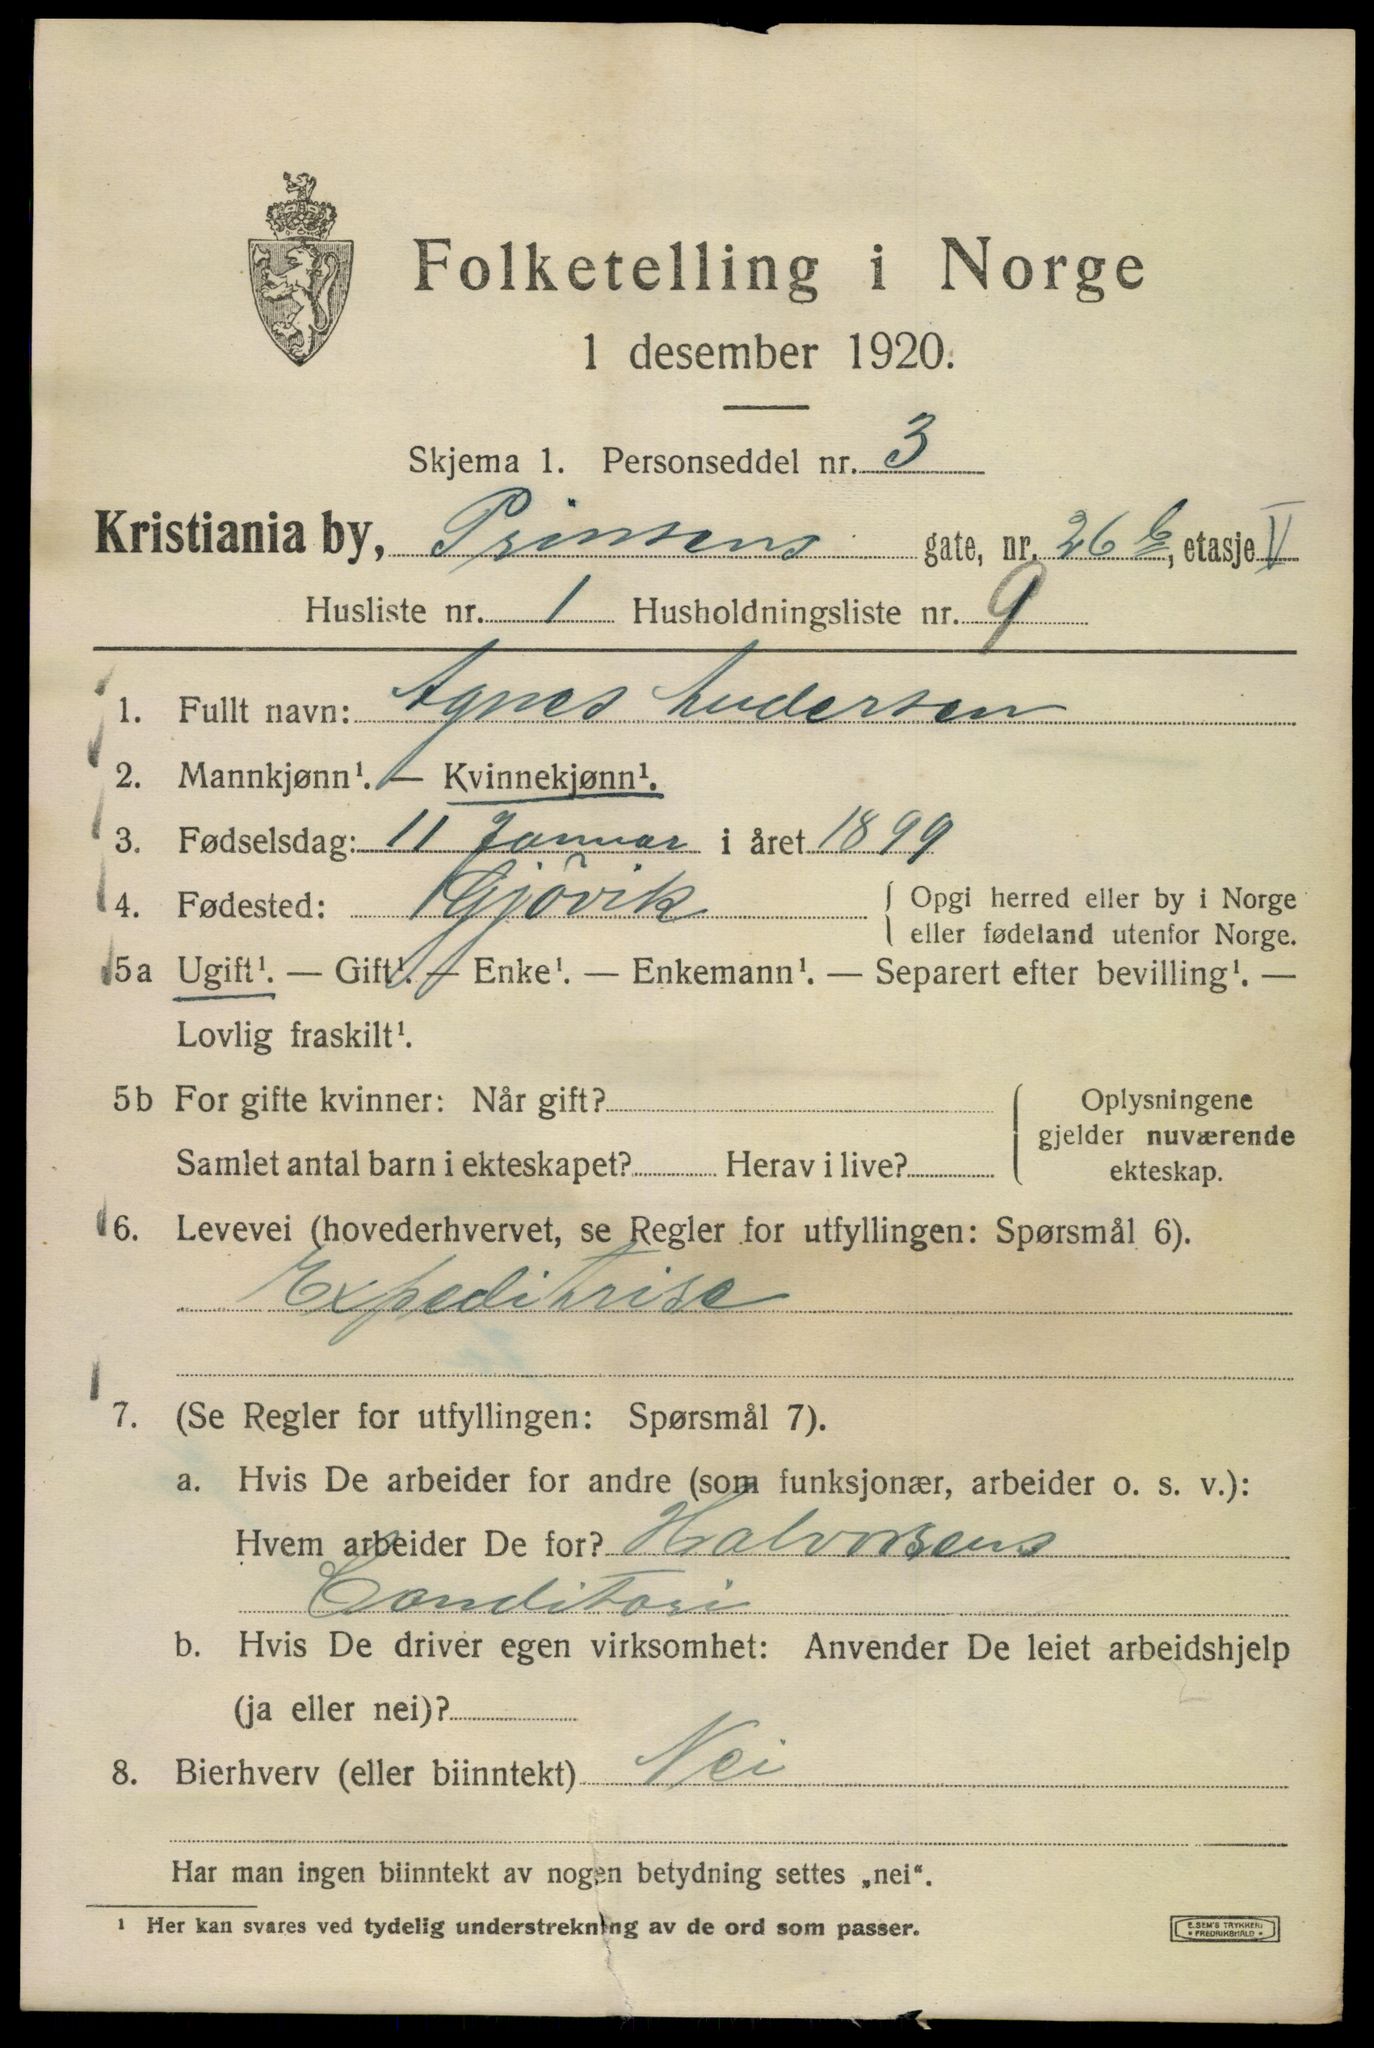 Folketelling i Norge
1 desember 1920.
Skjema 1. Personseddel nr. 3
Kristiania by, Prinsens gate, nr. 26 b, etasje V
Husliste nr. 1 Husholdningsliste nr. 9
1. Fullt navn: Agnes Andersen
2. Mannkjønn¹. — Kvinnekjønn¹.
3. Fødselsdag: 11 Januar i året 1899
4. Fødested: Gjövik { Opgi herred eller by i Norge
eller fødeland utenfor Norge.
5a Ugift¹. — Gift¹. — Enke¹. — Enkemann¹. — Separert efter bevilling¹. —
Lovlig fraskilt¹.
5b For gifte kvinner: Når gift? { Oplysningene
gjelder nuværende
Samlet antal barn i ekteskapet? Herav i live? ekteskap.
6. Levevei (hovederhvervet, se Regler for utfyllingen: Spørsmål 6).
Expeditrise
7. (Se Regler for utfyllingen: Spørsmål 7).
a. Hvis De arbeider for andre (som funksjonær, arbeider o. s. v.):
Hvem arbeider De for? Halvorsens
Conditori
b. Hvis De driver egen virksomhet: Anvender De leiet arbeidshjelp
(ja eller nei)?
8. Bierhverv (eller biinntekt) Nei
Har man ingen biinntekt av nogen betydning settes „nei“.
¹ Her kan svares ved tydelig understrekning av de ord som passer.
E. SEM'S TRYKKERI
* FREDRIKSHALD *